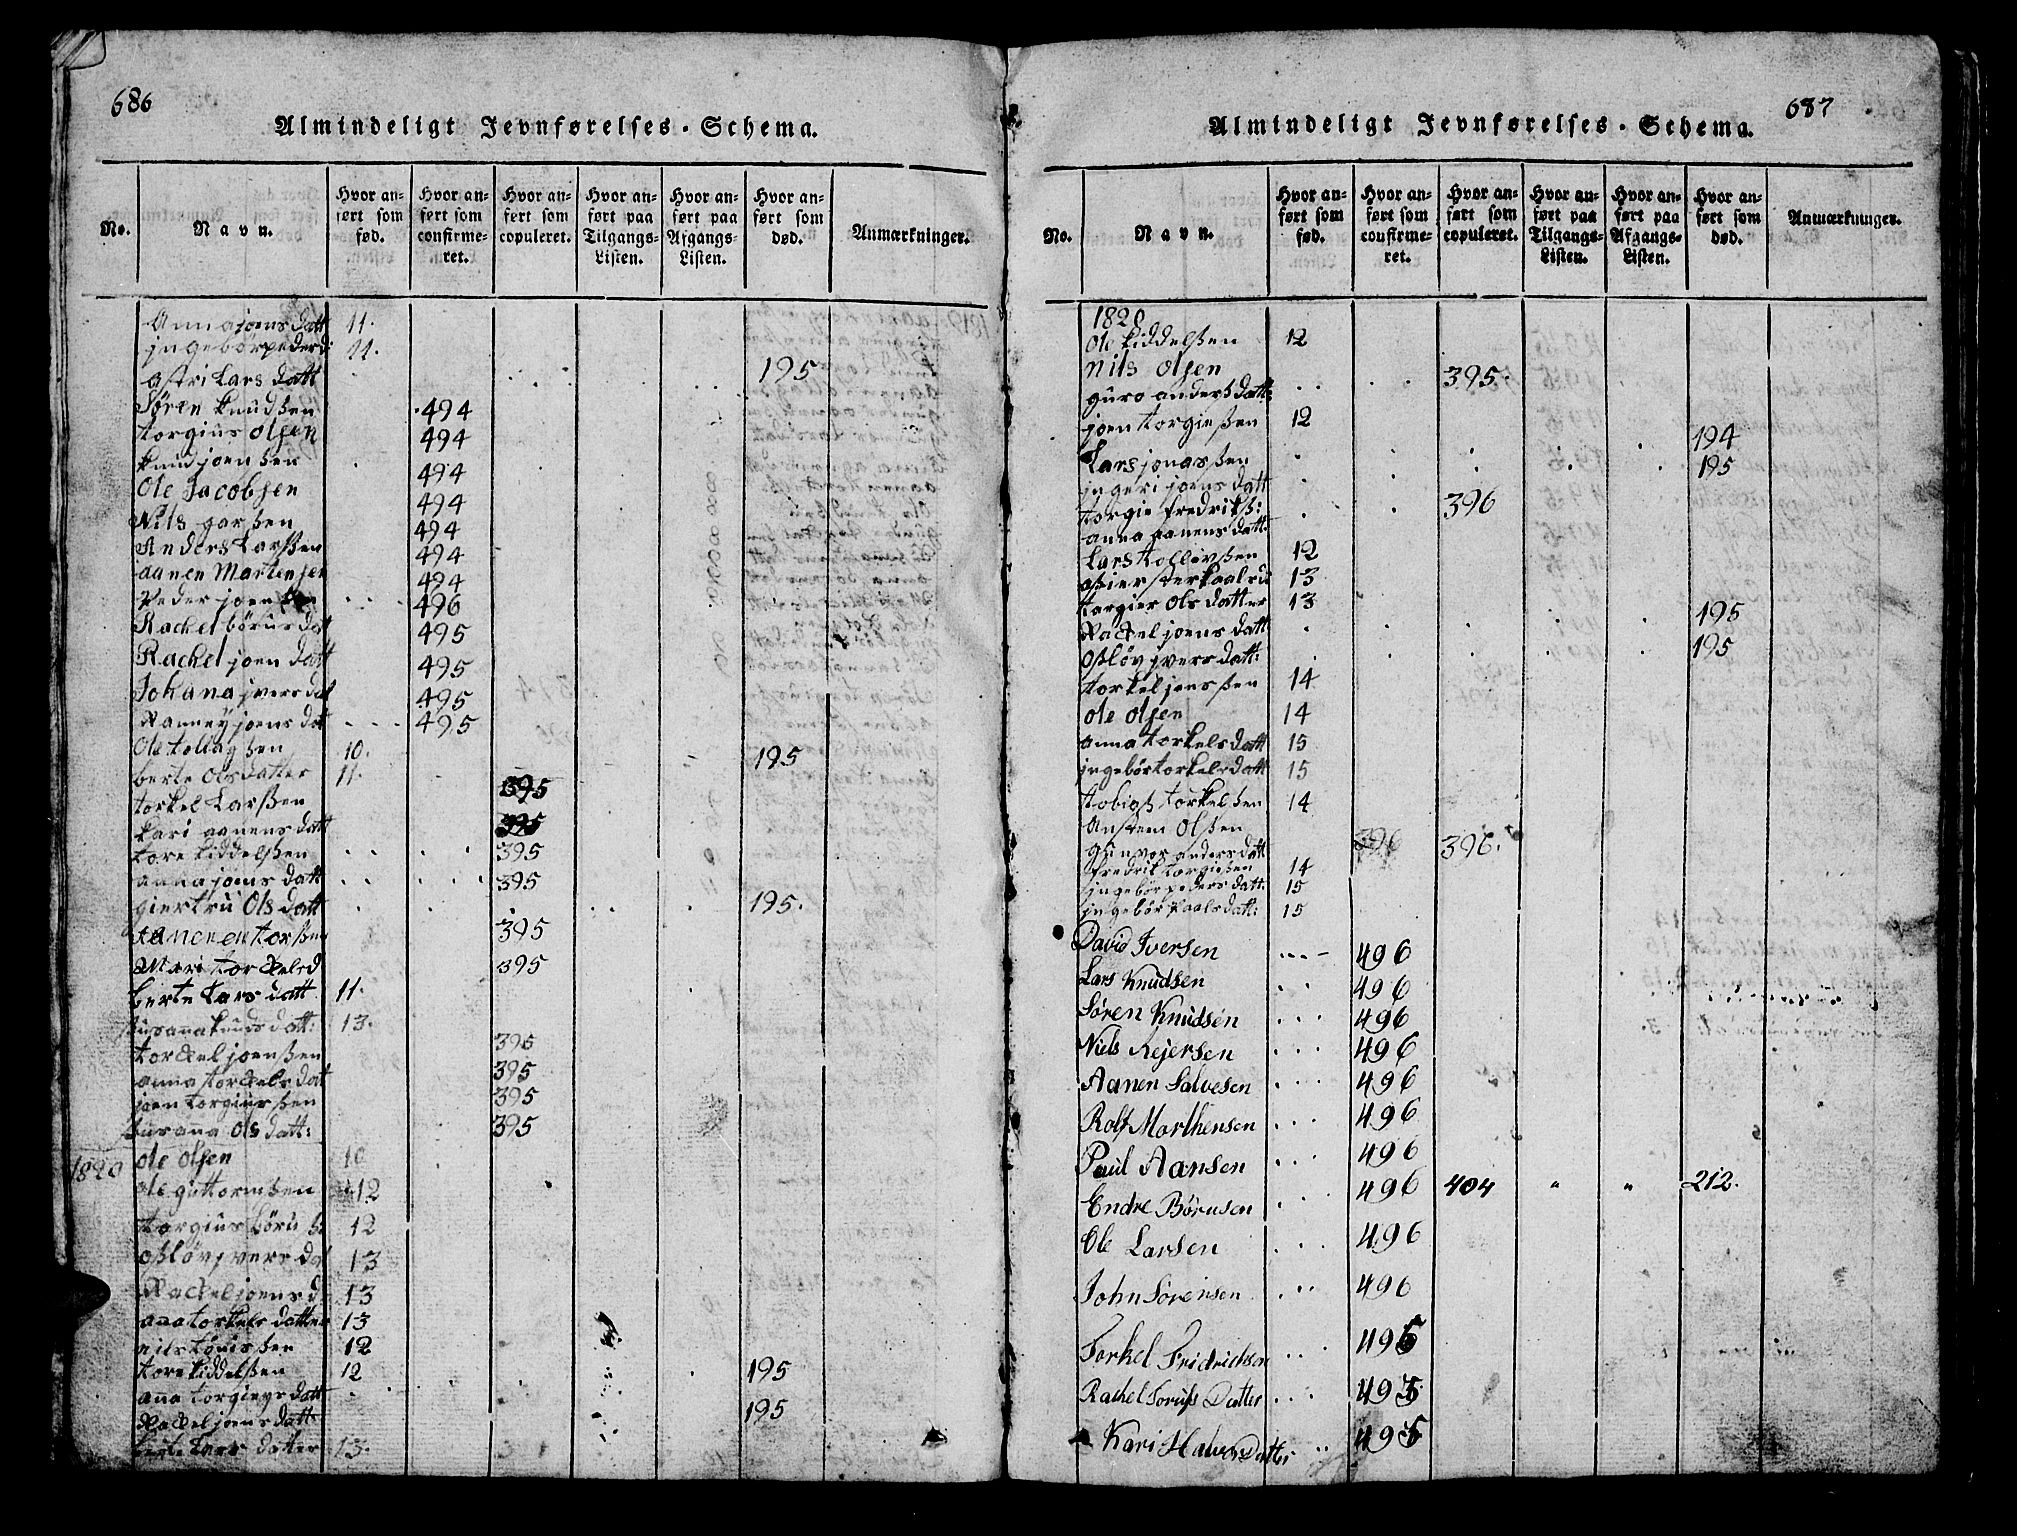 686
Almindeligt Jevnførelses-Schema.
No. Navn. Hvor anført som fød. Hvor anført som confirmeret. Hvor anført som copuleret. Hvor anført paa Tilgangs-Listen. Hvor anført paa Afgangs-Listen. Hvor anført som død. Anmærkninger.
Anna joens datt 11.
jngebor peders d 11.
astri Lars datt 195
Søren knudsen 494
torgius olsen 494
knud joensen 494
Ole Jacobsen 494
Nils garsen 494
Anders Larsen 494
aanen Martensen 494
Peder joensen 496
Rachel børus dat 495
Rachel joen datt 495
Johana jvers dat 495
Ranney joens dat 495
Ole tollagsen 10. 195
berte olsdatter 11.
torkel Larsen 395
kari aanens datt 395
tore kiddelsen 395
anna joens datt 395
giertru Ols datt 195.
aanen torsen 395
Mari torkels d 395
berte Lars datt 11.
susana knuds datt: 13.
torkel joensen 395
anna torkels dat 395
joen torgiussen 395
susana Ols datt: 395
1820 ole olsen 10
ole guttormsen 12
torgius børu se 12
osløv jvers dat 13
Rackel joens d 13
ana torkels datter 13
nils tønissen 12
tore kiddelsen 12
ana torgieus datt 195
Rackel joens datt: 195
berte Lars datter 13.
687
Almindeligt Jevnførelses-Schema.
No. Navn. Hvor anført som fød. Hvor anført som confirmeret. Hvor anført som copuleret. Hvor anført paa Tilgangs-Listen. Hvor anført paa Afgangs-Listen. Hvor anført som død. Anmærkninger.
1820
Ole kiddelsen 12
Nils olsen 395.
guro anders datt:
joen torgiesen 12
Lars jonassen 194
jngeri joens datt 195
torgie fredriks: 396
anna aanens datt:
Lars tollevsen 12
13
torgier ols datter 13
Rackel joens datt 195
osløv jvers datt: 195
torkel jenssen 14
ole olsen 14
anna torkels datt 15
jngebør torkels datt 15
tobias torkelsen 14
Ansten Olsen
gunvor anders datt 396 396.
fredrik torgiesen 14
jngebør peders datt: 15
jngebør Paals datt: 15
David Iversen 496
Lars Knudsen 496
Søren Knudsen 496
Niels Rejersen 496
Aanen Salvesen 496
Rolf Marthensen 496
Paul Aansen 496
Endre Børusen 496 404 " " 212.
Ole Larsen 496
John Sørensen 496
Torkel Fridrichsen 495
Rachel Toruss Datter 495
Kari Halvors Datter 495